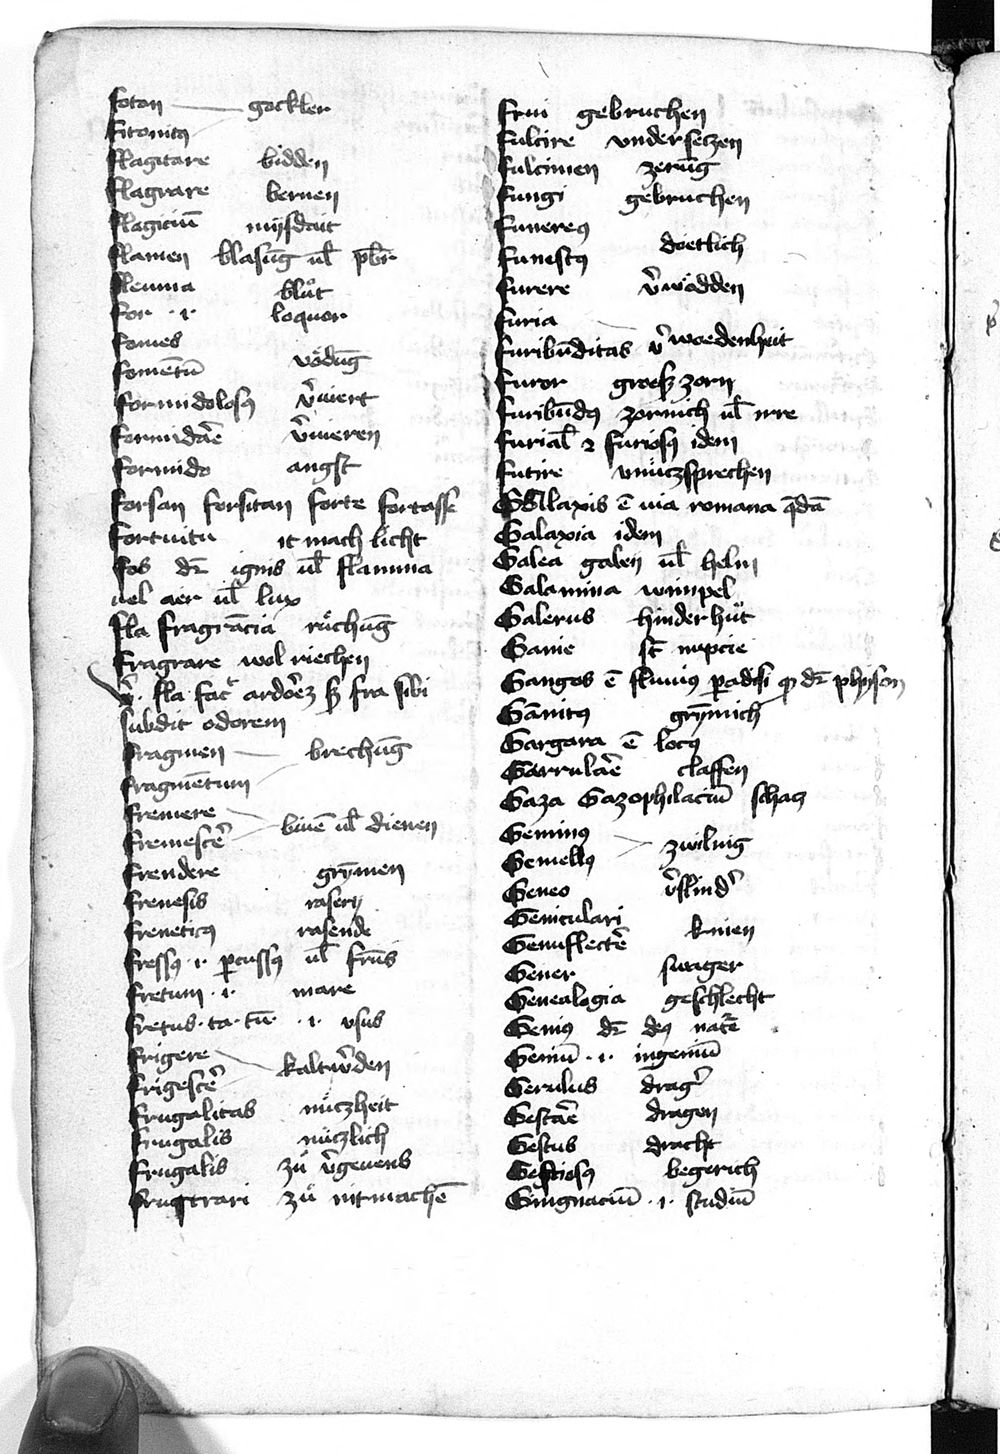 foton gockler
fitonicꝰ
flagitare bidden
flagrare bernen
flagiciū mysdait
flamen blasūg ul̄ pb̄r
fleuma blůt
for ·i· loquor
fomes
fomētū vödūg
formidolosꝰ v̄viert
formidāē v̄vieren
formido angst
forsan forsitan forte fortasse
fortuitu it mach licht
fos dr̄ ignis ul̄ flamma
uel aer ul̄ lux
fla fragrācia rüchūg
fragrare wol riechen
v̄ꝰ· fla fac̄ ardorēz sꝫ fra sibi
subdit odorem
fragmen brechūg
fragmētum
fremere
fremescē bivē ul̄ dienen
frendere grȳmen
frenesis rasery
freneticꝰ rasende
fressꝰ ·i· ꝑcussꝰ ul̄ frūs
fretum ·i· mare
fretus·ta·tū· ·i· vsus
frigere
frigescē kaltw̄den
frugalitas nüczheit
frugalis nüczlich
frugalis zů v̄gevens
frustrari zů nitmachē
frui gebruchen
fulcire vnderseczen
fulcimen zerūg
fungi gebruchen
funereꝰ
funestꝰ doetlich
furere v̄wödden
furia
furibūditas v̄woedenheit
furor groesz zorn
furibūdꝰ zornich ul̄ irre
furial̄ ⁊ furiosꝰ idem
futire vnüczsprechen
Gallaxis ē via romana q̄dā
Galaxia idem
Galea galen ul̄ helm
Galamina wimpel
Galerus hinderhůt
Game st̄ nupcie
Ganges ē fluuiꝰ ꝑadisi q̄ dr̄ physon
Gānitꝰ grȳmich
Gargara ē locꝰ
Garrulāē claffen
Gaza Gazophilaciū schacz
Geminꝰ
Gemellꝰ zwilnig
Geneo v̄slindꝰ
Geniculari
Genuflectē knien
Gener swager
Genealogia geschlecht
Geniꝰ dr̄ deꝰ natē
Geniū ·i· ingeniū
Gerulus dragꝰ
Gestāē dragen
Gestus dracht
Gestiosꝰ begerich
Gingnaciū ·i· studiū